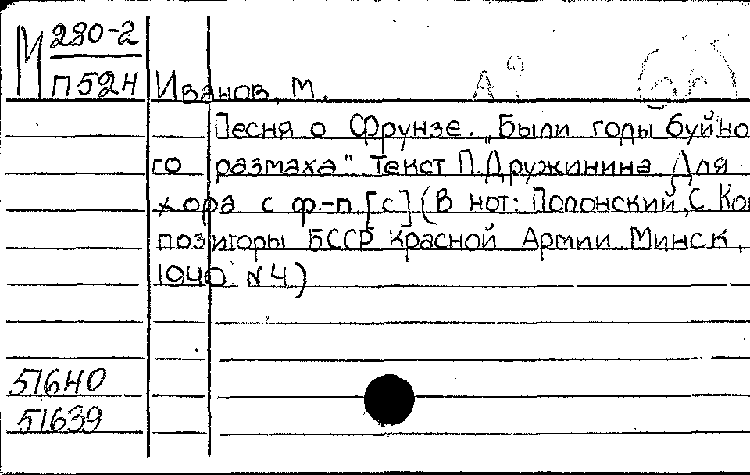 М 280-2
П52Н Иванов, М.
Песня о Фрунзе. „Были годы буйно
го размаха" Текст П. Дружинина Для
хора с ф-п [с] (В нот: Полонский, С. Ком
позиторы БССР Красной Армии Минск,
1940. №4.)
51640
51639